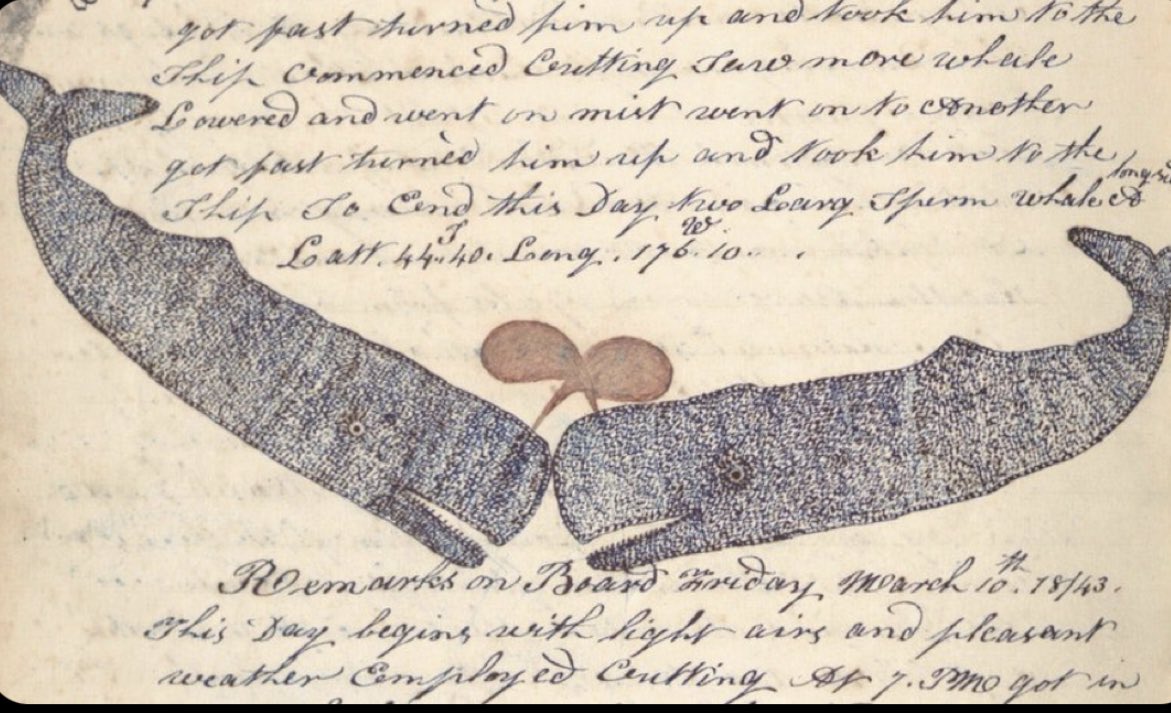 got fast turned him up and took him to the
Ship Commenced Cutting Saw more whale
Lowered and went on mist went on to Another
got fast turned him up and took him to the
Ship So End this Day two Larg Sperm whale
Latt. 44.40. S Long. 176.10. W.
Remarks on Board Friday March 10th. 1843.
This Day begins with light airs and pleasant
weather Employed Cutting At 7. PM got in